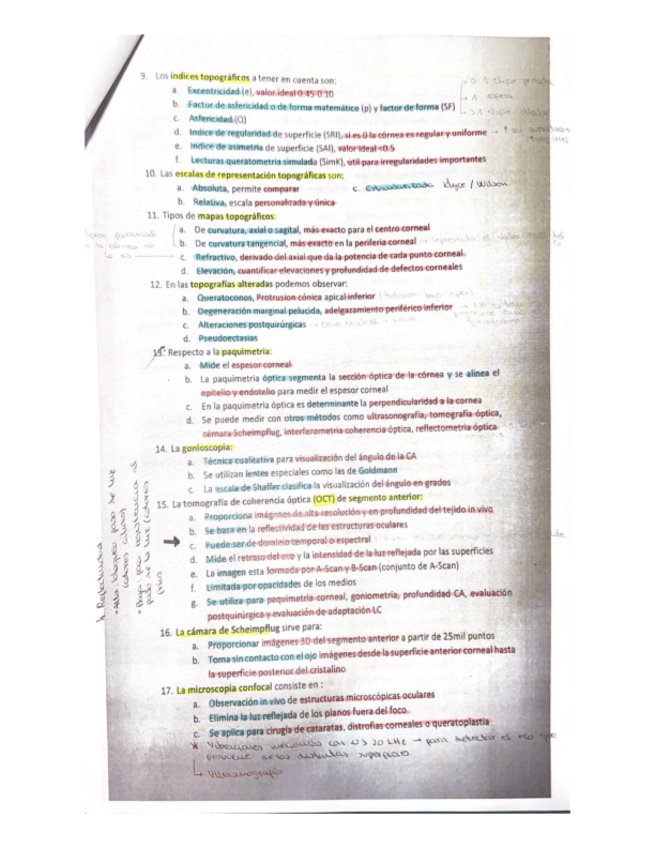 9. Los índices topográficos a tener en cuenta son:
a. Excentricidad (e), valor ideal 0.45-0.10
b. Factor de asfericidad o de forma matemático (p) y factor de forma (SF)
c. Asfericidad (Q)
d. Indice de regularidad de superficie (SRI), si es 0 la córnea es regular y uniforme →
e. Indice de asimetria de superficie (SAI), valor ideal <0.5
f. Lecturas queratometria simulada (SimK), útil para irregularidades importantes
10. Las escalas de representación topográficas son:
a. Absoluta, permite comparar
c. Estandarizada Klyce / Wilson
b. Relativa, escala personalizada y única
11. Tipos de mapas topográficos:
a. De curvatura, axial o sagital, más exacto para el centro corneal
b. De curvatura tangencial, más exacto en la periferia corneal →
c. Refractivo, derivado del axial que da la potencia de cada punto corneal
d. Elevación, cuantificar elevaciones y profundidad de defectos corneales
12. En las topografías alteradas podemos observar:
a. Queratoconos, Protrusion cónica apical inferior
b. Degeneración marginal pelucida, adelgazamiento periférico inferior
c. Alteraciones postquirúrgicas
d. Pseudoectasias
13. Respecto a la paquimetria:
a. Mide el espesor corneal
b. La paquimetria óptica segmenta la sección óptica de la córnea y se alinea el
epitelio y endotelio para medir el espesor corneal
c. En la paquimetria óptica es determinante la perpendicularidad a la cornea
d. Se puede medir con otros métodos como ultrasonografia, tomografia óptica,
cámara Scheimpflug, interferometria coherencia óptica, reflectometria óptica
14. La gonioscopia:
a. Técnica cualitativa para visualización del ángulo de la CA
b. Se utilizan lentes especiales como las de Goldmann
c. La escala de Shaffer clasifica la visualización del ángulo en grados
15. La tomografía de coherencia óptica (OCT) de segmento anterior:
a. Proporciona imágenes de alta resolución y en profundidad del tejido in vivo
b. Se basa en la reflectividad de las estructuras oculares
c. Puede ser de dominio temporal o espectral
d. Mide el retraso del eco y la intensidad de la luz reflejada por las superficies
e. La imagen esta formada por A-Scan y B-Scan (conjunto de A-Scan)
f. Limitada por opacidades de los medios
g. Se utiliza para paquimetria corneal, goniometria, profundidad CA, evaluación
postquirúrgica y evaluación de adaptación LC
16. La cámara de Scheimpflug sirve para:
a. Proporcionar imágenes 3D del segmento anterior a partir de 25mil puntos
b. Toma sin contacto con el ojo imágenes desde la superficie anterior corneal hasta
la superficie posterior del cristalino
17. La microscopia confocal consiste en :
a. Observación in vivo de estructuras microscópicas oculares
b. Elimina la luz reflejada de los planos fuera del foco
c. Se aplica para cirugía de cataratas, distrofias corneales o queratoplastia
* Vibraciones mecánicas con US 20 kHz → para detectar el eco que
proviene de las distintas superficies.
Ultrasonografia